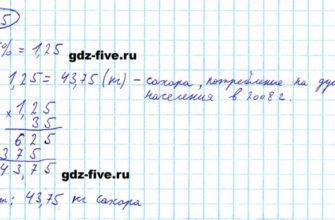 5
% = 1,25
gdz-five.ru
1,25 = 43,75 (кг) – сахара, потребление на ду
населения в 2008 г.
× 1,25
35
625
375
43,75
gdz-five.ru
т: 43,75 кг сахара